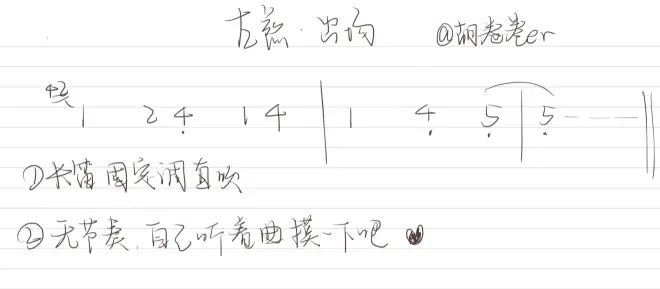 左慈·出场 @胡卷卷er
1 2 4̣ 1 4 | 1 4̣ 5̣ | 5̣ - - - ‖
①长笛固定调直吹
②无节奏,自己听着曲摸一下吧